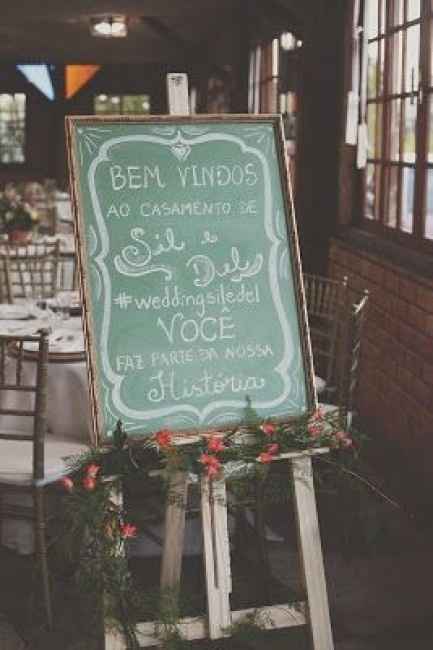 BEM VINDOS
AO CASAMENTO DE
Sil e
Del
#weddingsiledel
VOCÊ
FAZ PARTE DA NOSSA
História